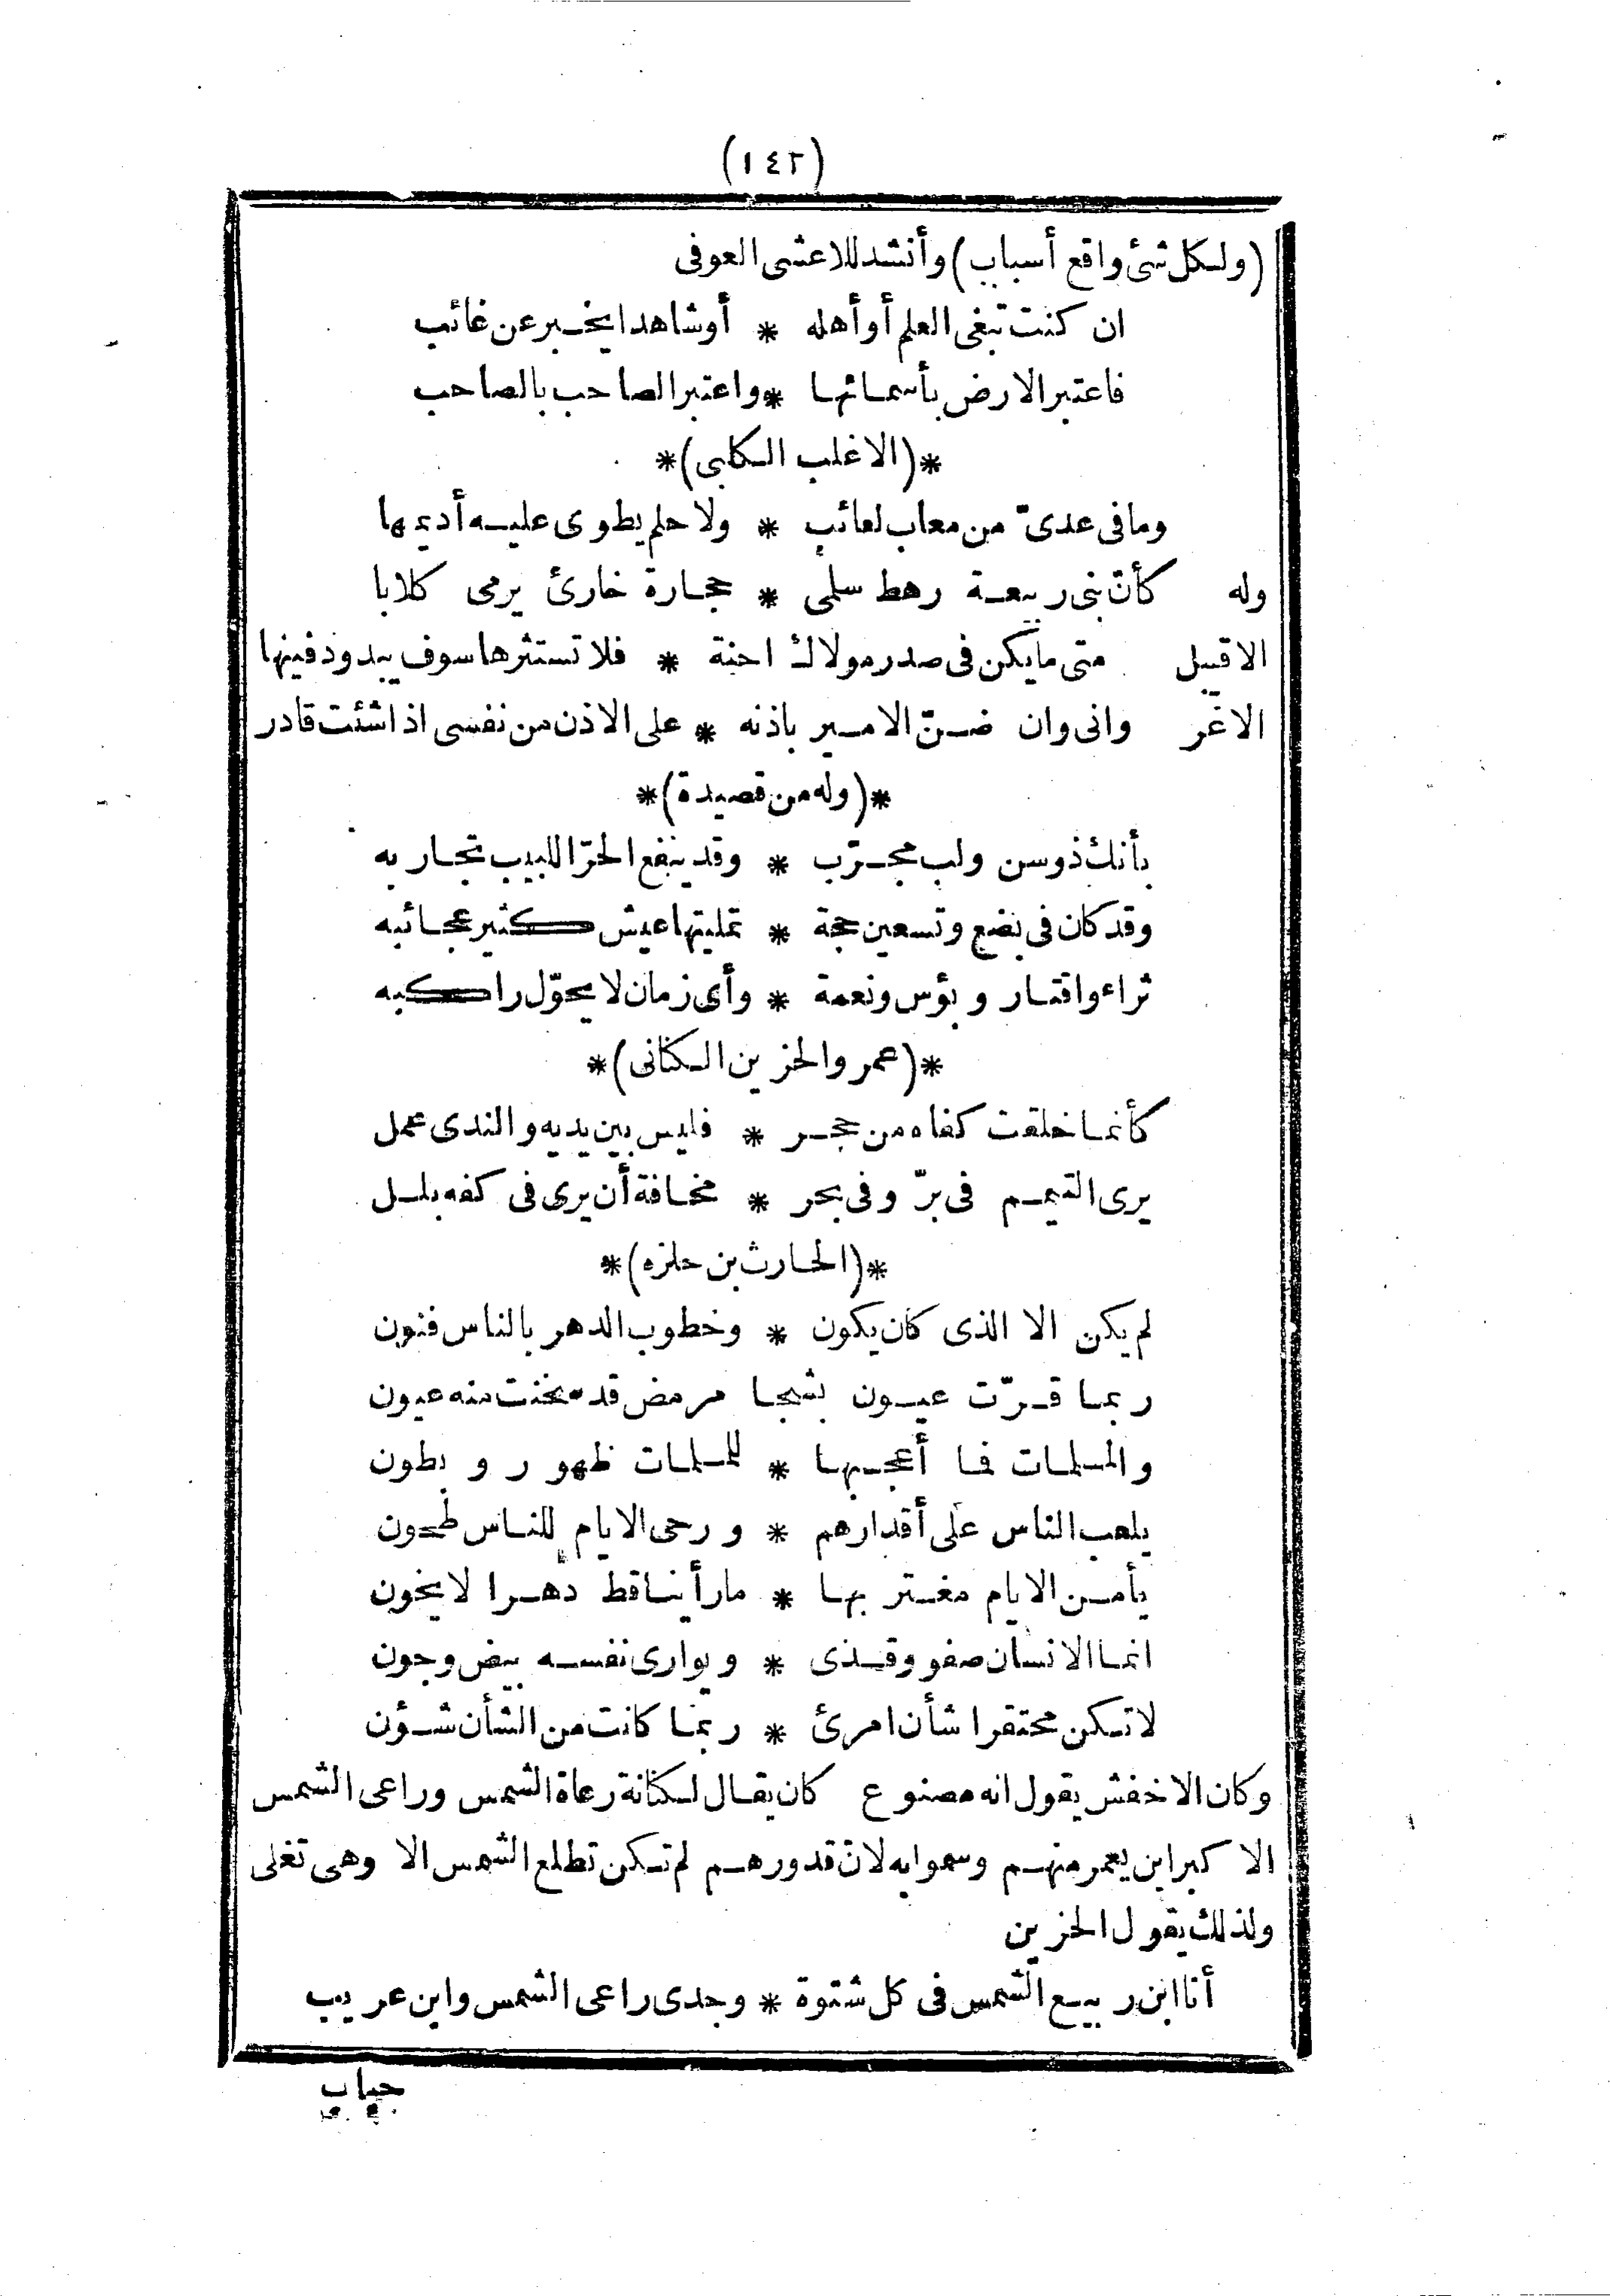 (١٤٢)
(ولكل شئ واقع أسباب) وأنشد للاعشى العوفى
ان كنت تبغى العلم أو أهله * أو شاهدا يخبر عن غائب
فاعتبر الارض بأسمائها * واعتبر الصاحب بالصاحب
*(الاغلب الكلبى)*
وما فى عدىّ من معاب لعائب * ولا حلم يطوى عليه أديمها
وله كأنّ بنى ربيعة رهط سلمى * حجارة خارئ يرمى كلابا
الاقيبل متى ما يكن فى صدر مولاك احنة * فلا تستثرها سوف يبدو دفينها
الاغر وانى وان ضنّ الامير باذنه * على الاذن من نفسى اذا شئت قادر
*(وله من قصيدة)*
بأنك ذو سن ولب مجرّب * وقد ينفع الحرّ اللبيب تجاربه
وقد كان فى بضع وتسعين حجة * تمليتها عيش كثير عجائبه
ثراء واقتار وبؤس ونعمة * وأى زمان لا يحوّل راكبه
*(عمرو الحزين الكنانى)*
كأنما خلقت كفاه من حجر * فليس بين يديه والندى عمل
يرى التيمم فى برّ وفى بحر * مخافة أن يرى فى كفه بلل
*(الحارث بن حلزه)*
لم يكن الا الذى كان يكون * وخطوب الدهر بالناس فنون
ربما قرّت عيون بشجا مرمض قد سخنت منه عيون
والملمات فما أعجبها * للملمات ظهور وبطون
يلعب الناس على أقدارهم * ورحى الايام للناس طحون
يأمن الايام مغتر بها * ما رأينا قط دهرا لا يخون
انما الانسان صفو وقذى * ويوارى نفسه بيض وجون
لا تكن محتقرا شأن امرئ * ربما كانت من الشأن شؤن
وكان الاخفش يقول انه مصنوع كان يقال لكنانة رعاة الشمس وراعى الشمس
الاكبر ابن يعمر منهم وسموا به لان قدورهم لم تكن تطلع الشمس الا وهى تغلى
ولذلك يقول الحزين
أنا ابن ربيع الشمس فى كل شتوة * وجدى راعى الشمس وابن عريب